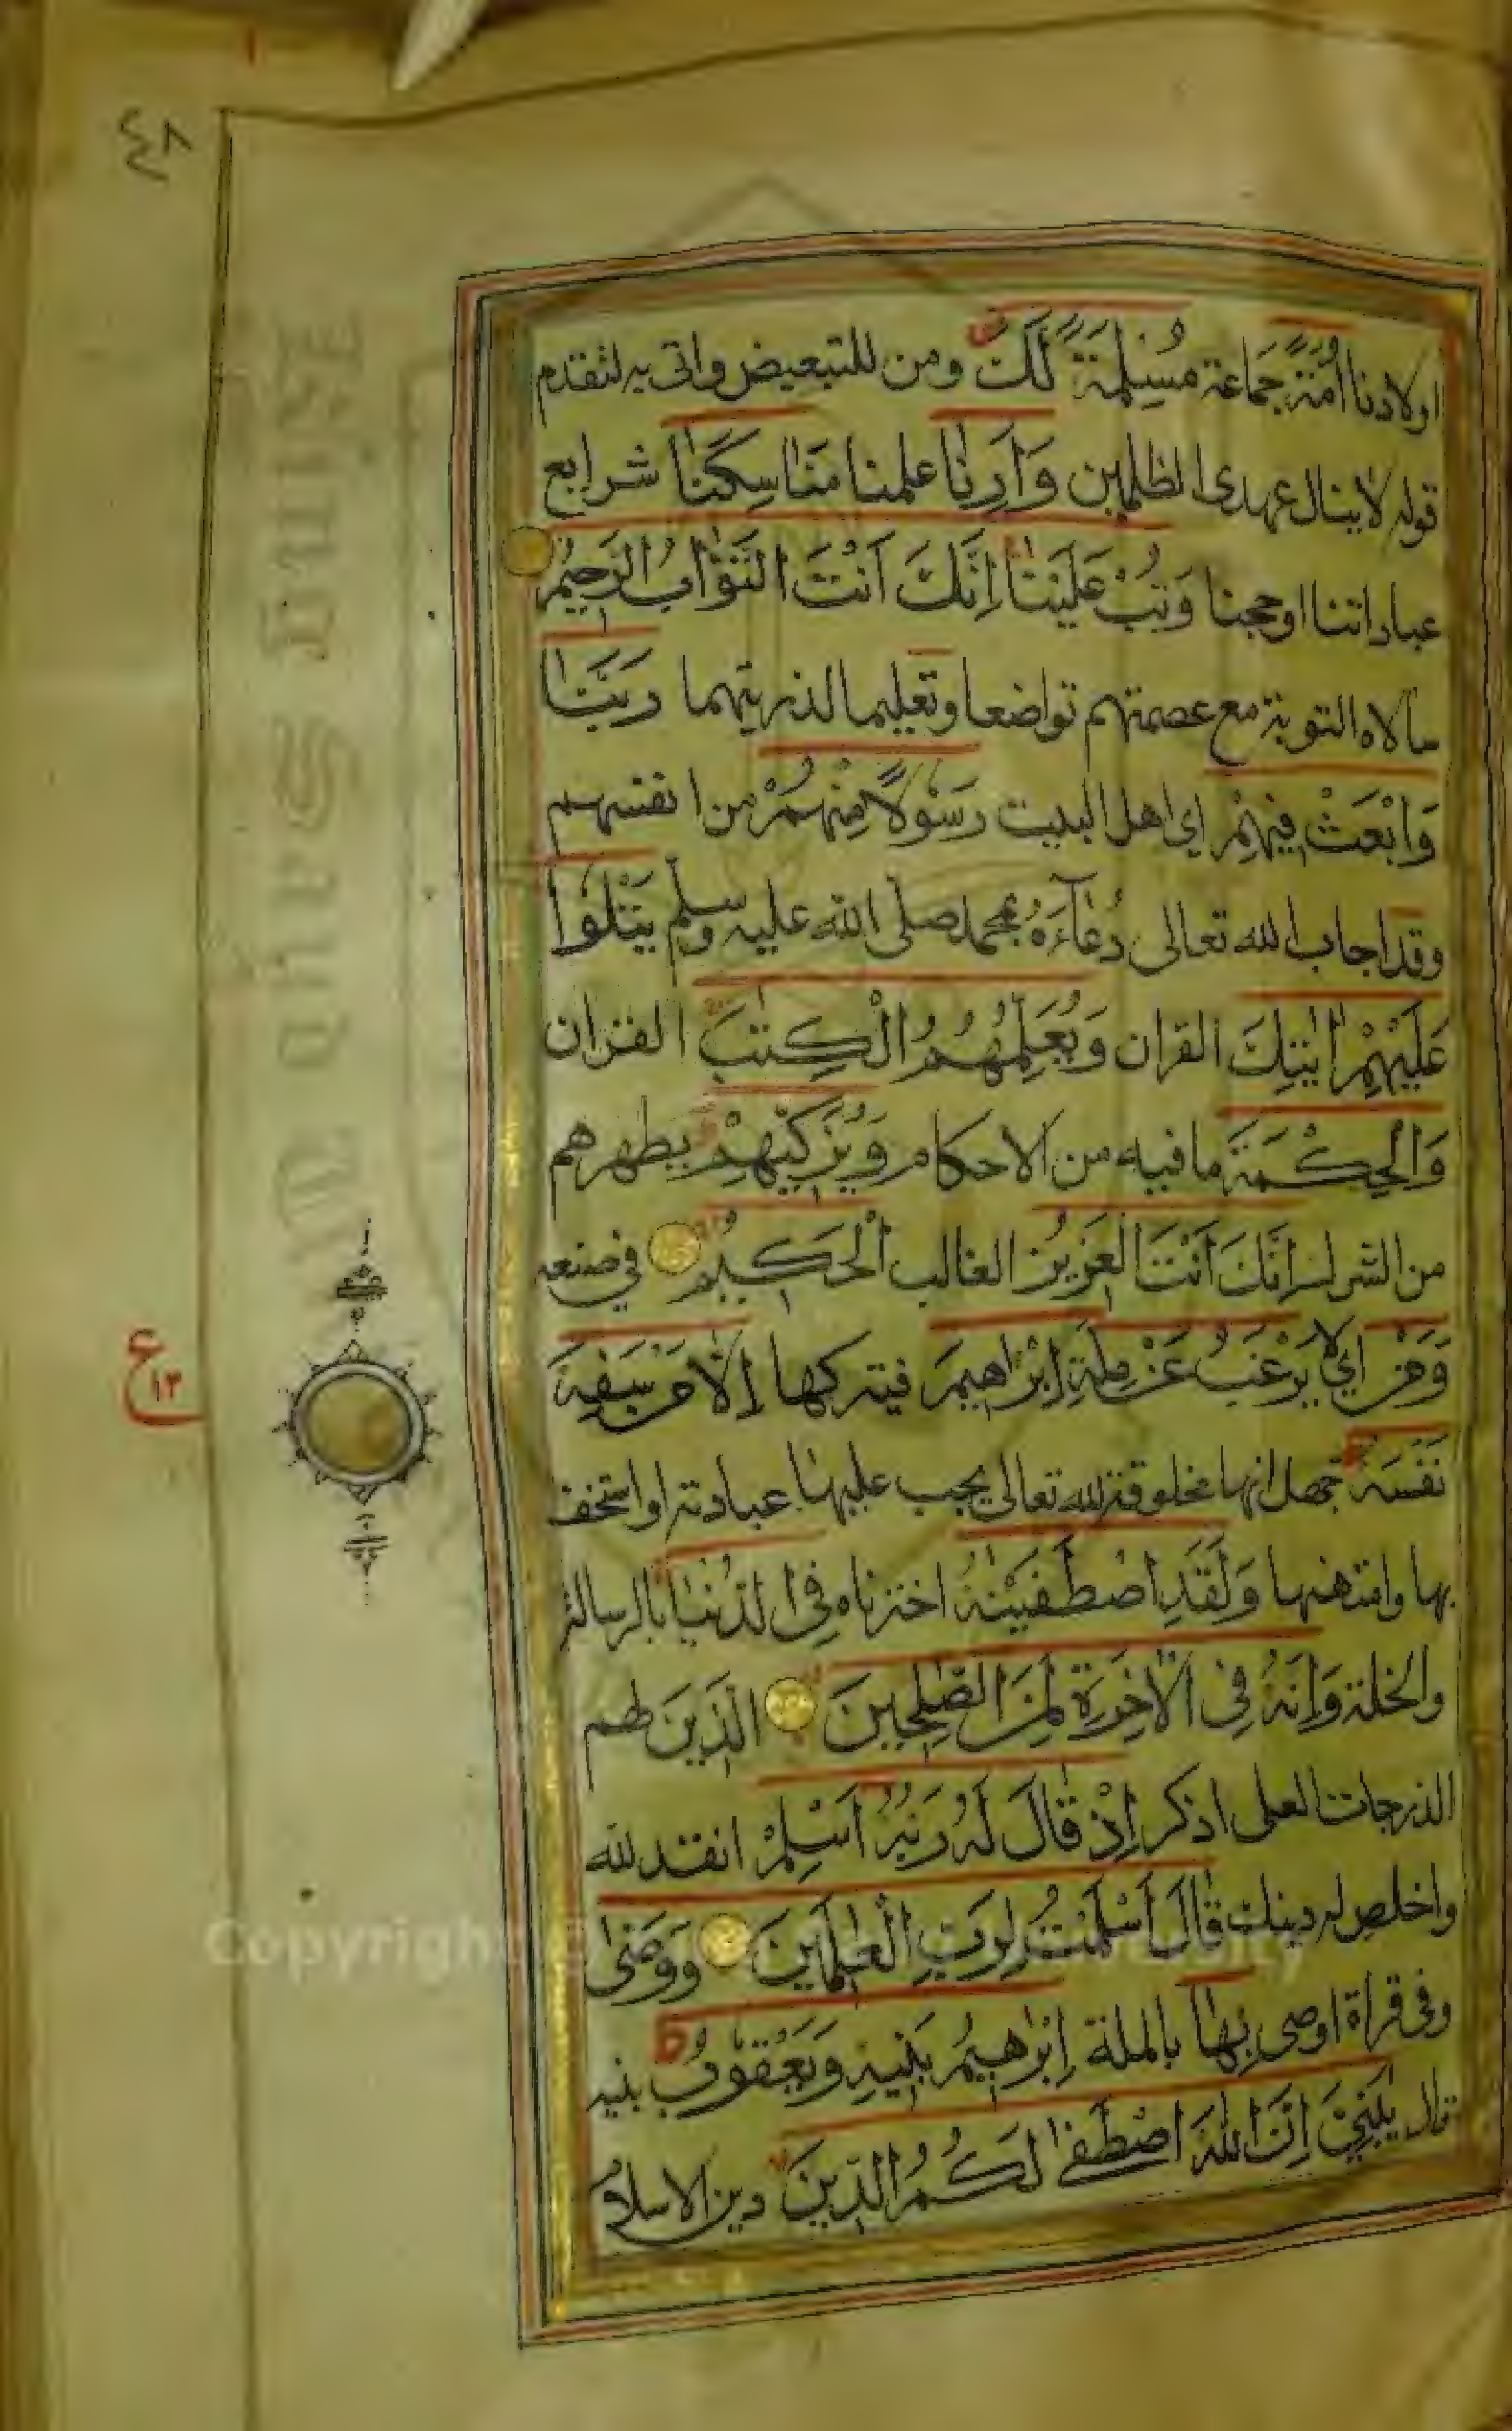 ٤٨
اولادنا اُمَّةً جَمَاعة مُسْلِمَةً لَّكَ ومن للتبعيض واتى به لتقدم
قوله لا ينال عهدى الظلمين وَاَرِنَا علمنا مَنَاسِكَنَا شرايع
عباداتنا او حجنا وَتُبْ عَلَيْنَا اِنَّكَ اَنْتَ التَّوَّابُ الرَّحِيْمُ
سالاه التوبة مع عصمتهم تواضعا وتعليما لذريتهما رَبَّنَا
وَابْعَثْ فِيْهِمْ اي اهل البيت رَسُوْلًا مِنْهُمْ من انفسهم
وقد اجاب الله تعالى دُعَآءَهُ بمحمد صلى الله عليه وسلم يَتْلُوْا
عَلَيْهِمْ اٰيٰتِكَ القران وَيُعَلِّمُهُمُ الْكِتٰبَ القران
وَالْحِكْمَةَ ما فيه من الاحكام وَيُزَكِّيْهِمْ يطهرهم
من الشرك اِنَّكَ اَنْتَ الْعَزِيْزُ الغالب الْحَكِيْمُ في صنعه
وَمَنْ اي لا يَرْغَبُ عَنْ مِلَّةِ اِبْرٰاهِيْمَ فيتركها اِلَّا مَنْ سَفِهَ
نَفْسَهُ جهل انها مخلوقة لله تعالى يجب عليها عبادته او استخف
بها وامتهنها وَلَقَدِ اصْطَفَيْنٰهُ اخترناه فِى الدُّنْيَا بالرسالة
والخلة وَاِنَّهُ فِى الْاٰخِرَةِ لَمِنَ الصّٰلِحِيْنَ الَّذِيْنَ لهم
الدرجات العلى اذكر اِذْ قَالَ لَهُ رَبُّهُ اَسْلِمْ انقد لله
واخلص له دينك قَالَ اَسْلَمْتُ لِرَبِّ الْعٰلَمِيْنَ وَوَصّٰى
وفى قراة اوصى بِهَا بالملة اِبْرٰهِيْمُ بَنِيْهِ وَيَعْقُوْبُ بنيه
قال يٰبَنِيَّ اِنَّ اللهَ اصْطَفٰى لَكُمُ الدِّيْنَ دين الاسلام
ع ١٣
Copyright